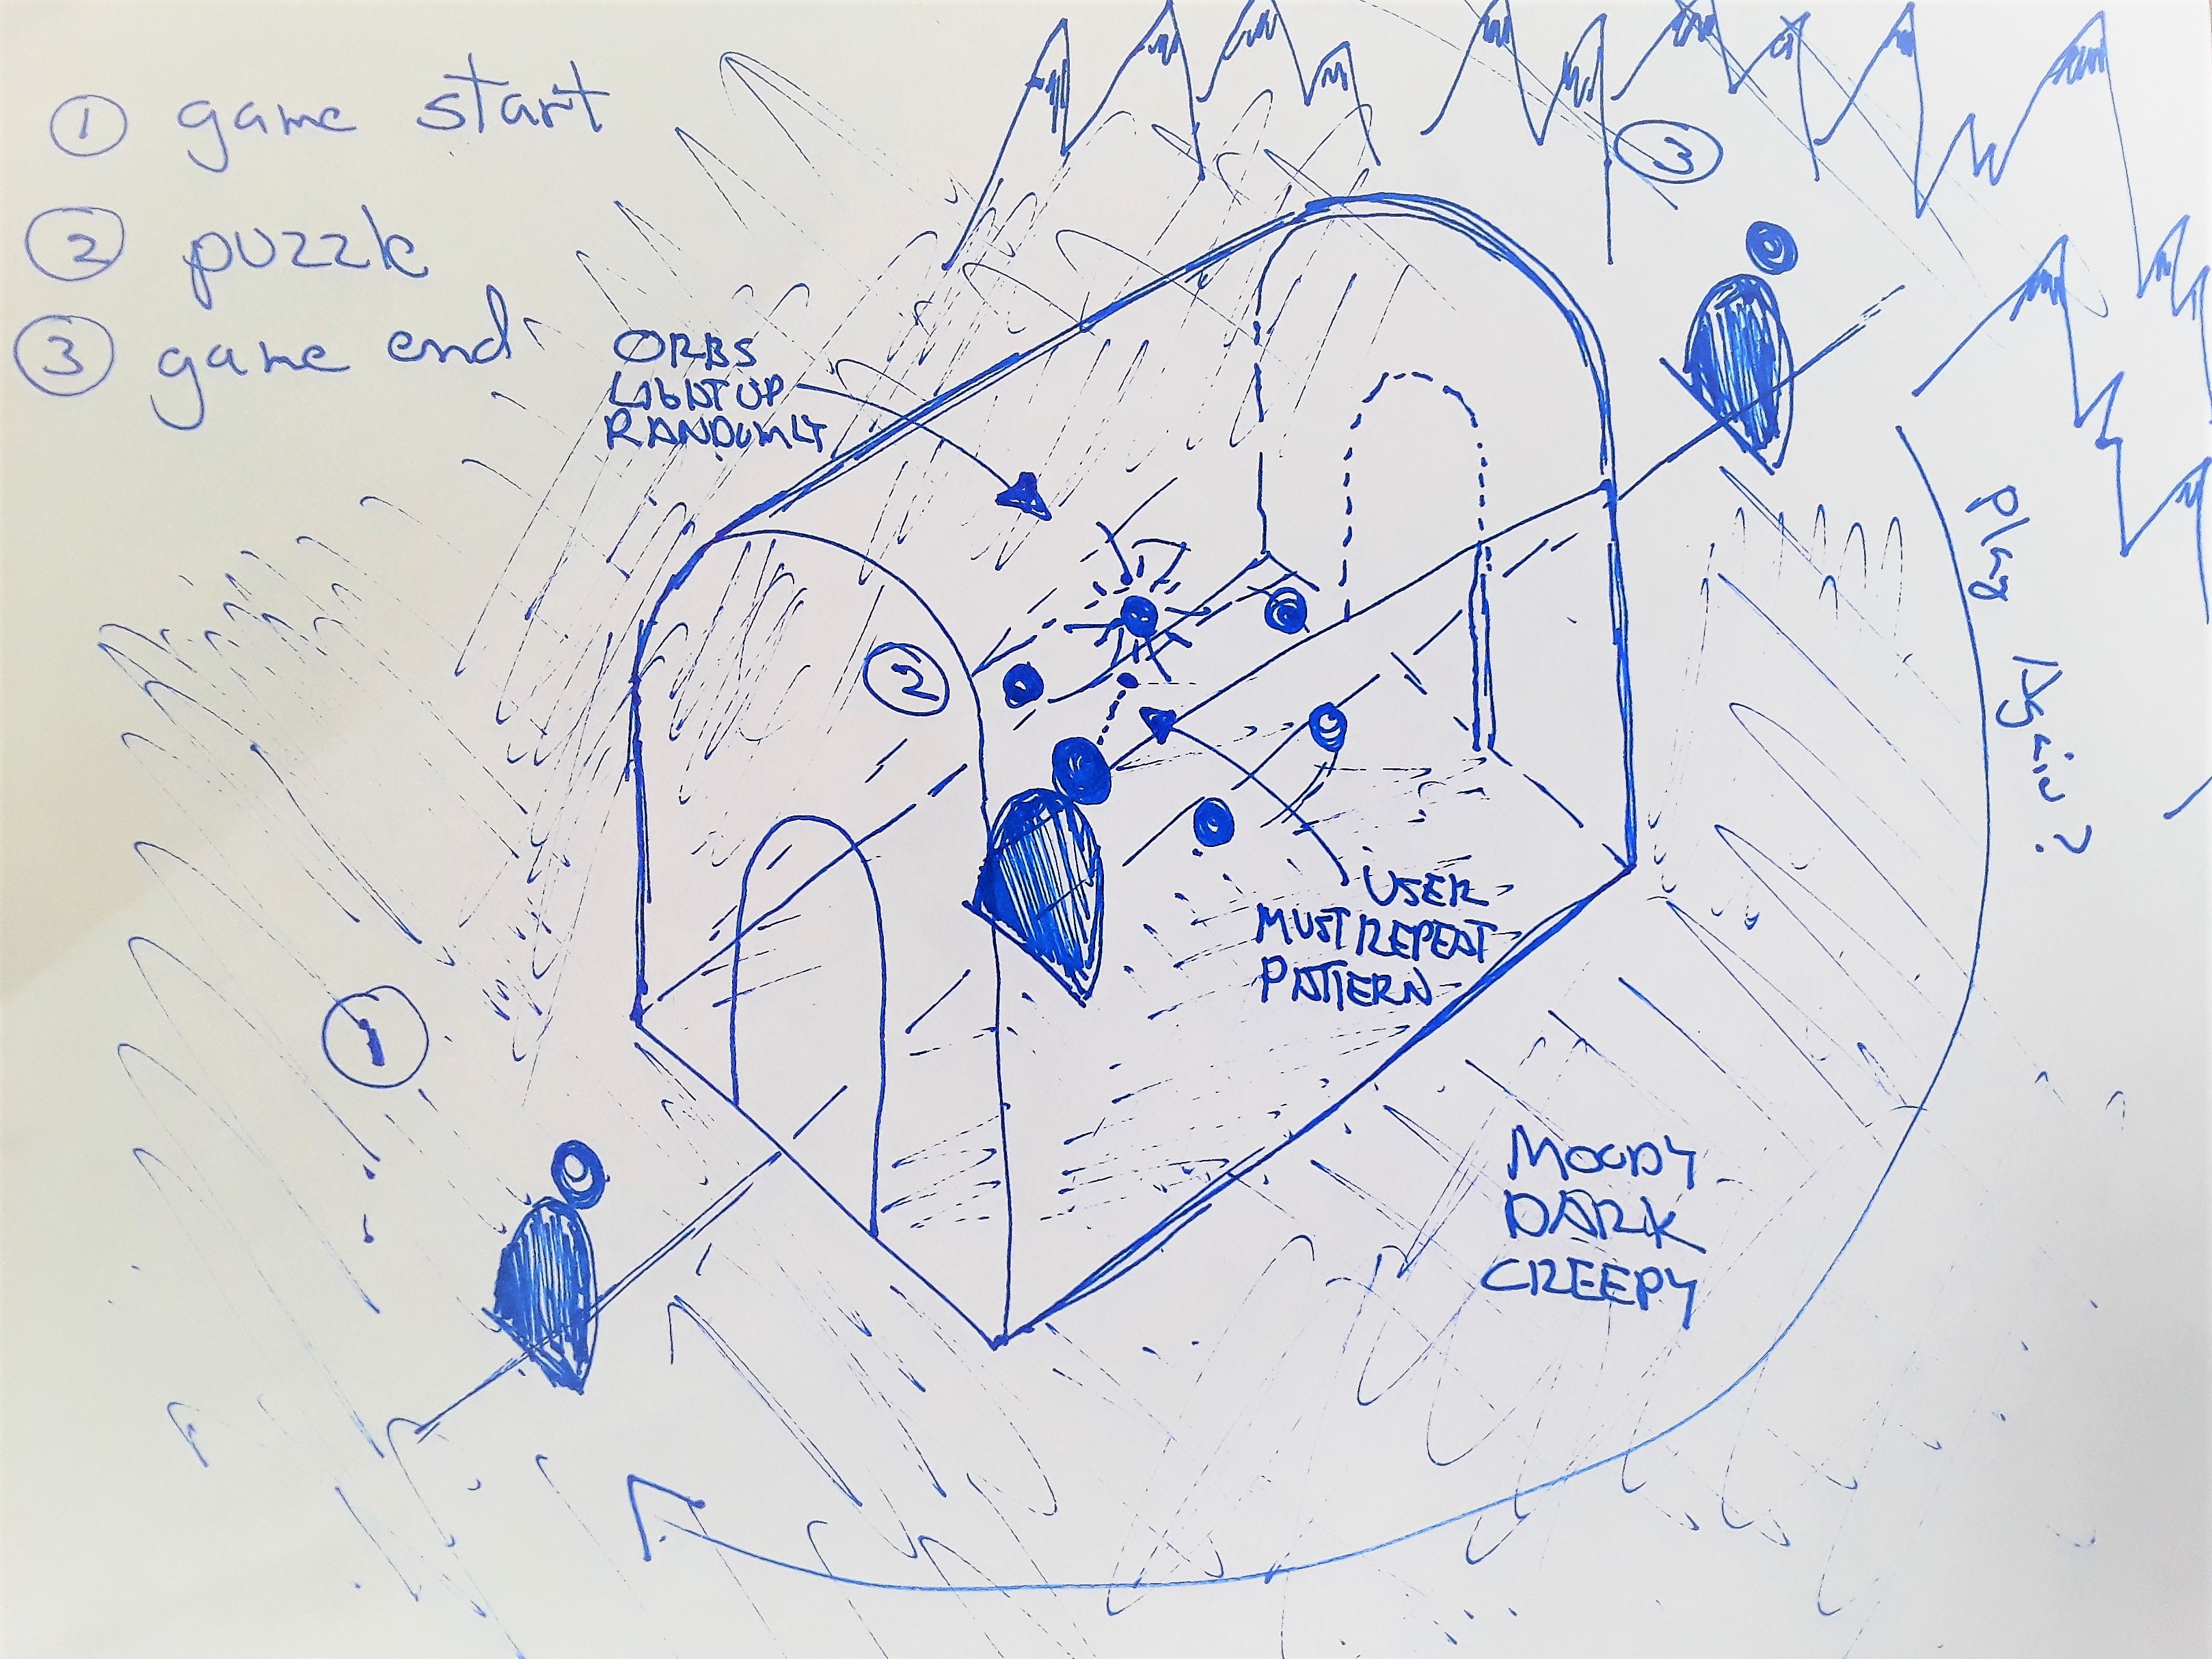 ① game start
② puzzle
③ game end
ORBS
LIGHT UP
RANDOMLY
③
②
Play Again?
USER
MUST REPEAT
PATTERN
①
MOODY
DARK
CREEPY